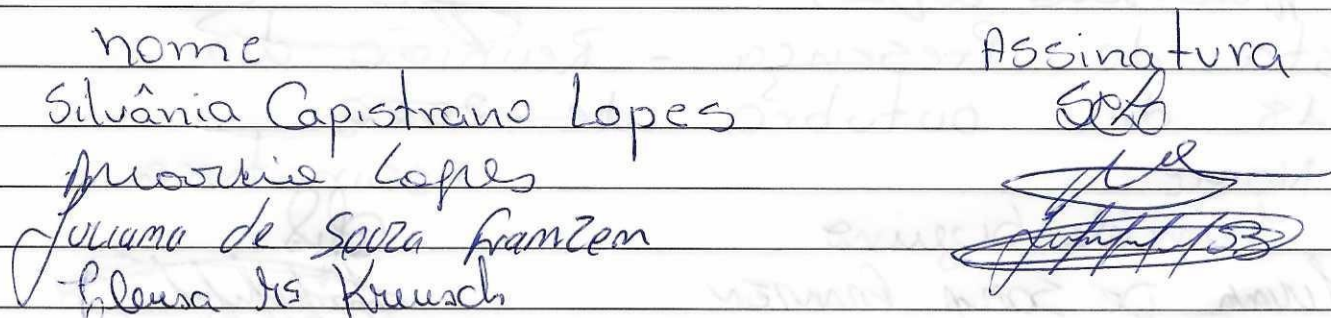 nome Assinatura
Silvânia Capistrano Lopes SCL
Lopes
Juliana de Souza Framzen
Cleusa Kreusch